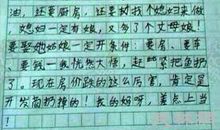 油，还要厨房，还要给找个媳妇来做，
媳妇一定有娘，又多了个丈母娘！
要娶她姑娘一定开条件：要房、要车、
要钱一我恍然大悟，赶紧把鱼扔
了。现在房价跌的这么厉害，肯定是
开发商扔掉的！我的妈呀，差点上当
！